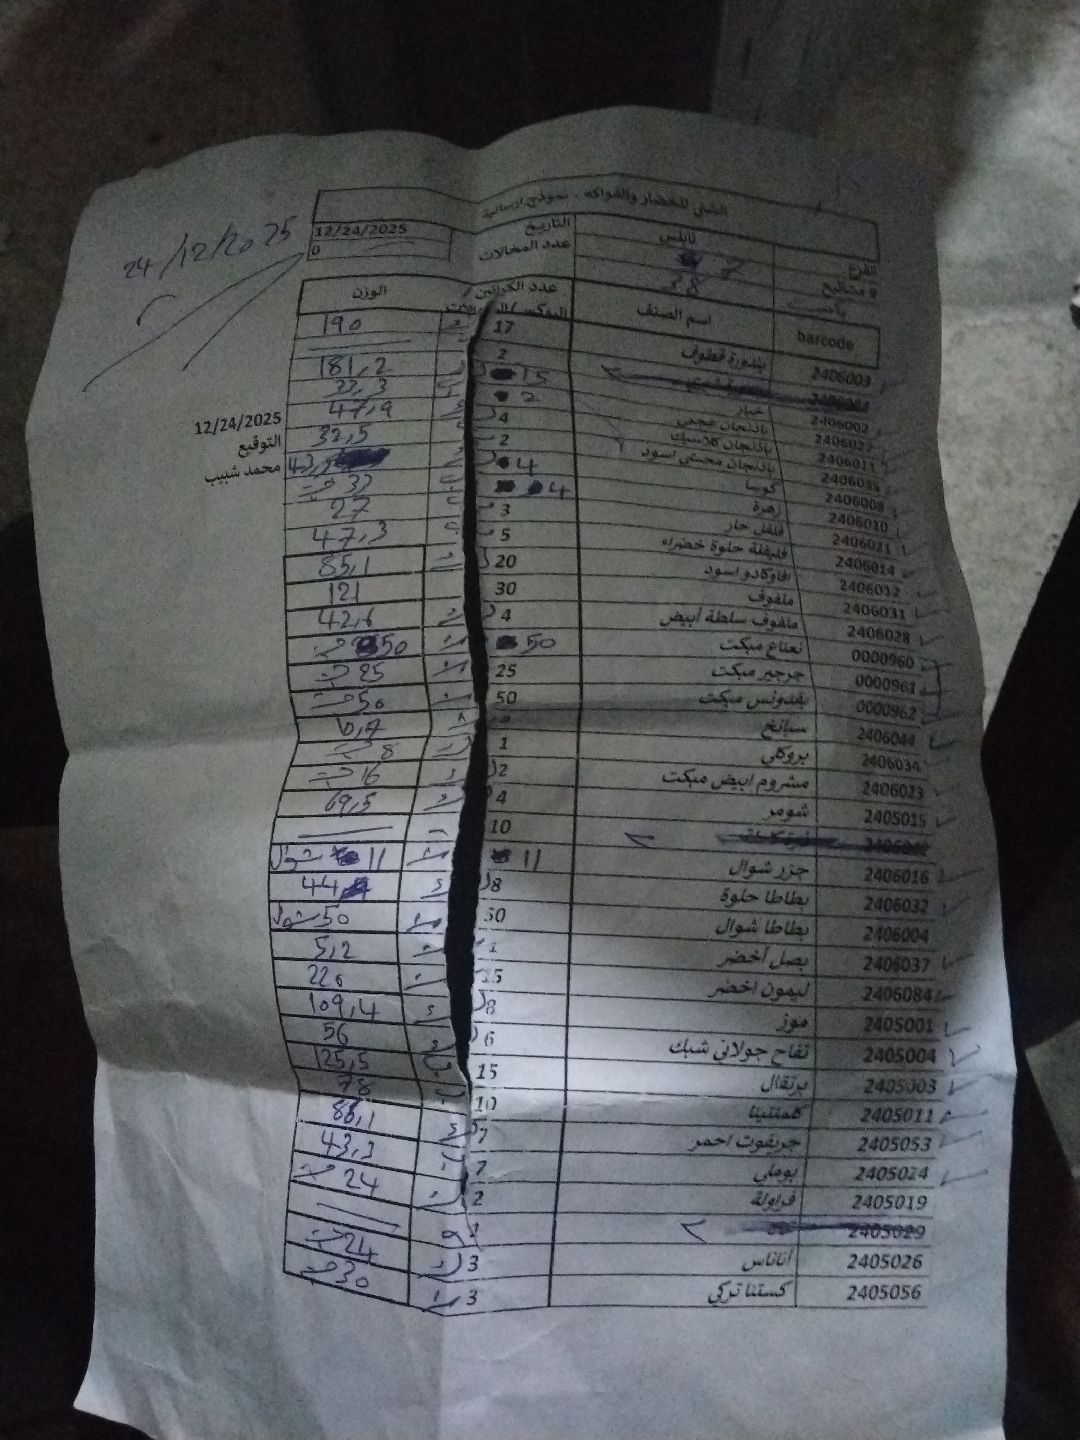 الشني للخضار والفواكه - نموذج ارسالية
24/12/2025
الفرع نابلس التاريخ 12/24/2025
7 عدد المحالات 0
barcode اسم الصنف عدد الكراتين الوزن
2406003 بندورة قطوف 17 190
2
2406002 خيار 15 181,2
2406027 باذنجان عجمي 2 33,3
2406011 باذنجان كلاسيك 4 47,9
2406035 باذنجان محشي اسود 2 32,5
2406008 كوسا 4
2406010 زهرة 4 32
2406021 فلفل حار 3 27
2406014 فليفلة حلوة خضراء 5 47,3
2406012 افاوكادو اسود 20 85,1
2406031 ملفوف 30 121
2406028 ملفوف سلطة أبيض 4 42,6
0000960 نعناع مبكت 50 50
0000961 جرجير مبكت 25 25
0000962 بقدونس مبكت 50 50
2406044 سبانخ
2406034 بروكلي 1 8
2406023 مشروم ابيض مبكت 2 16
2405015 شومر 4 69,5
10
2406016 جزر شوال 11 11 شوال
2406032 بطاطا حلوة 8 44
2406004 بطاطا شوال 50 50 شوال
2406037 بصل أخضر 1 5,2
2406084 ليمون اخضر 15
2405001 موز 8 109,4
2405004 تفاح جولاني شبك 6 56
2405003 برتقال 15 125,5
2405011 كلمنتينا 10 78
2405053 جريفوت احمر 7 86,1
2405024 بوملي 7 43,3
2405019 فراولة 2 24
2405029 1
2405026 أناناس 3 24
2405056 كستنا تركي 3 30
12/24/2025
التوقيع
محمد شبيب